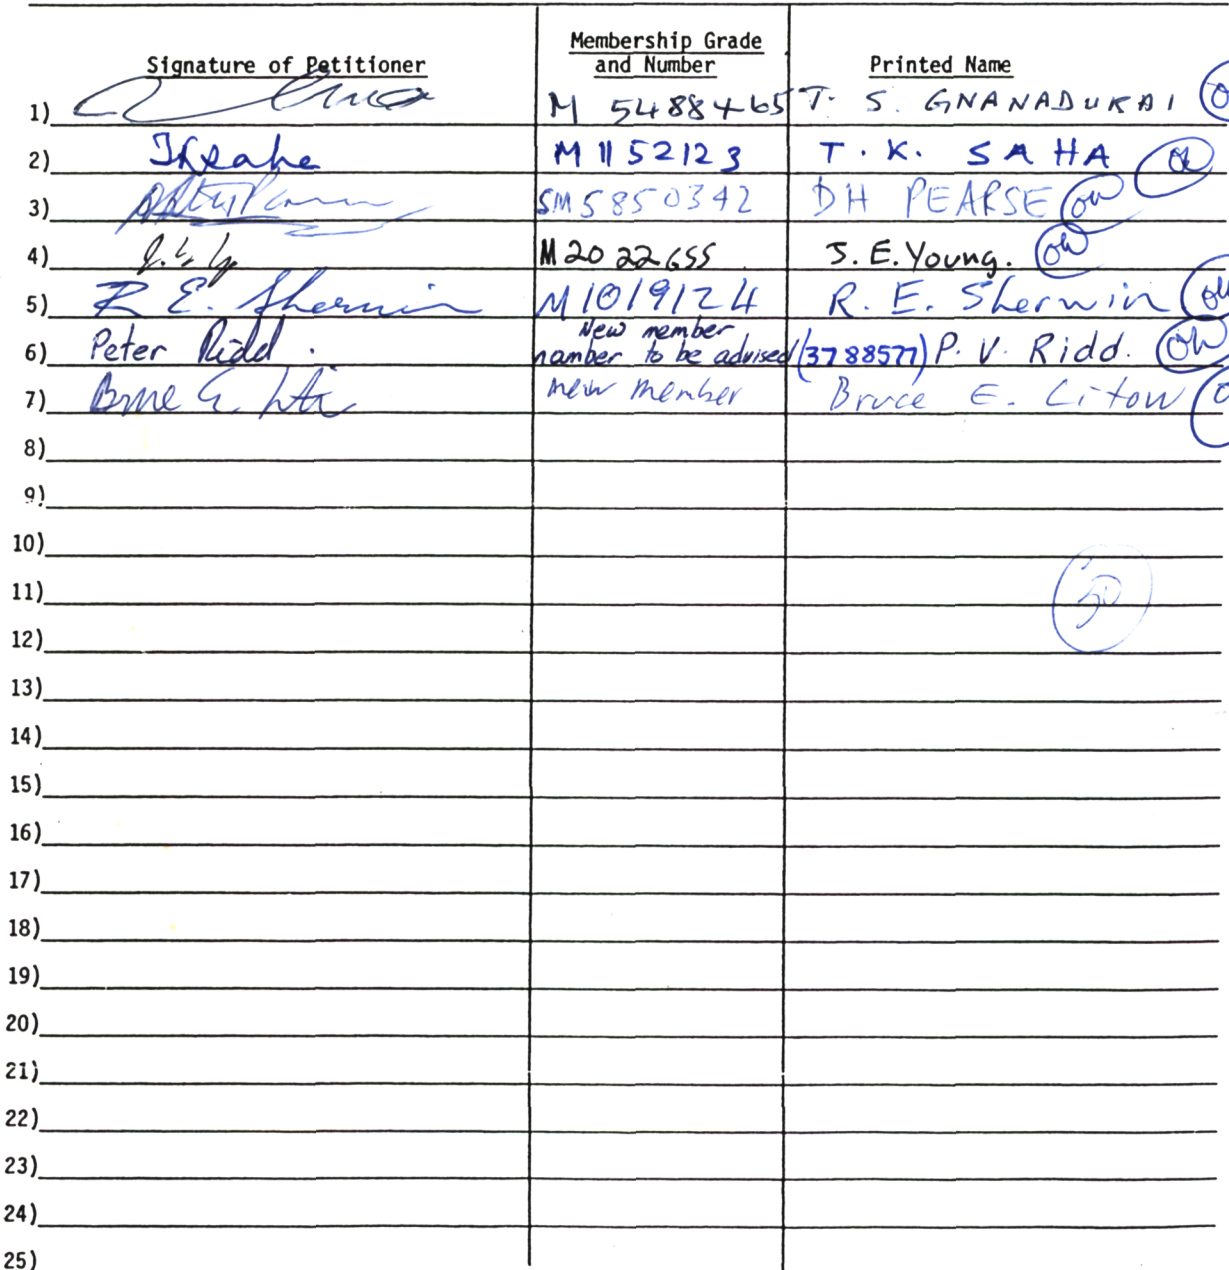 Signature of Petitioner Membership Grade and Number Printed Name
1) M 5488465 T. S. GNANADURAI
2) TKSaha M 1152123 T. K. SAHA OK
3) SM 5850342 DH PEARSE OK
4) M 2022655 J. E. Young. OK
5) R E. Sherwin M 1019124 R. E. Sherwin OK
6) Peter Ridd. New member number to be advised (3788577) P. V. Ridd. OK
7) Bruce E. new member Bruce E. Litow
8)
9)
10)
11)
12)
13)
14)
15)
16)
17)
18)
19)
20)
21)
22)
23)
24)
25)